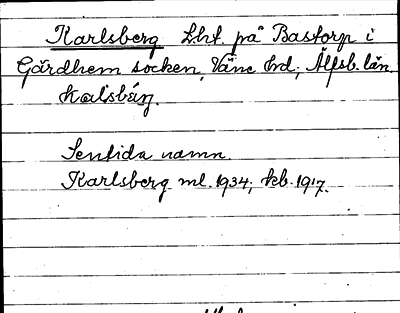 Karlsberg Lht. på Bastorp i
Gärdhem socken, Väne hd, Älfsb. län.
Sentida namn.
Karlsberg ml. 1934, kb. 1917.